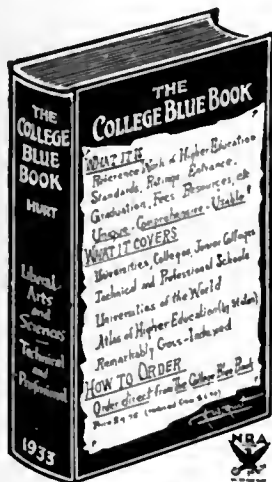 THE
COLLEGE
BLUE
BOOK
HURT
Liberal
Arts
and
Sciences
Technical
and
Professional
1933
THE
COLLEGE BLUE BOOK
WHAT IT IS
Reference Work of Higher Education
Standards, Ratings Entrance,
Graduation, Fees Resources, etc
Unique - Comprehensive - Usable!
WHAT IT COVERS
Universities, Colleges, Junior Colleges
Technical and Professional Schools
Universities of the World
Atlas of Higher Education (by states)
Remarkably Cross-Indexed
HOW TO ORDER
Order direct from The College Blue Book
NRA